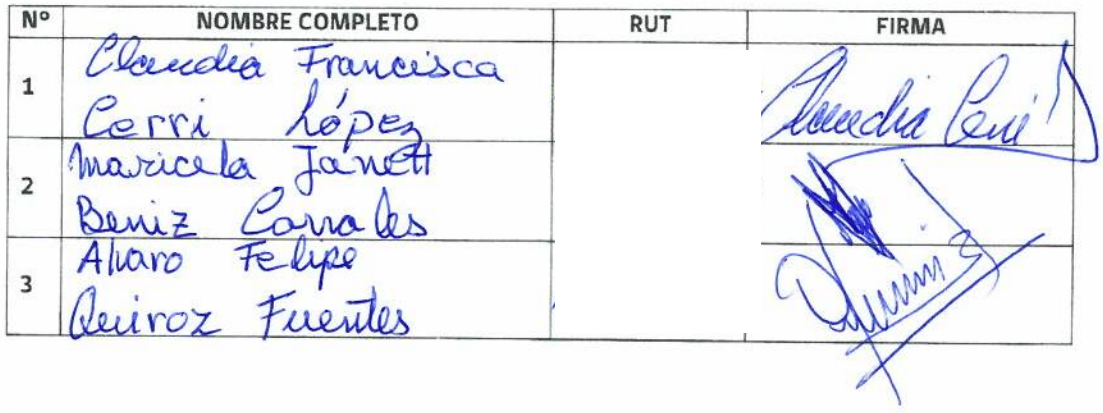 Nº NOMBRE COMPLETO RUT FIRMA
1 Claudia Francisca
Cerri López Claudia Cerri
2 Maricela Janett
Beniz Corrales
3 Alvaro Felipe
Quiroz Fuentes